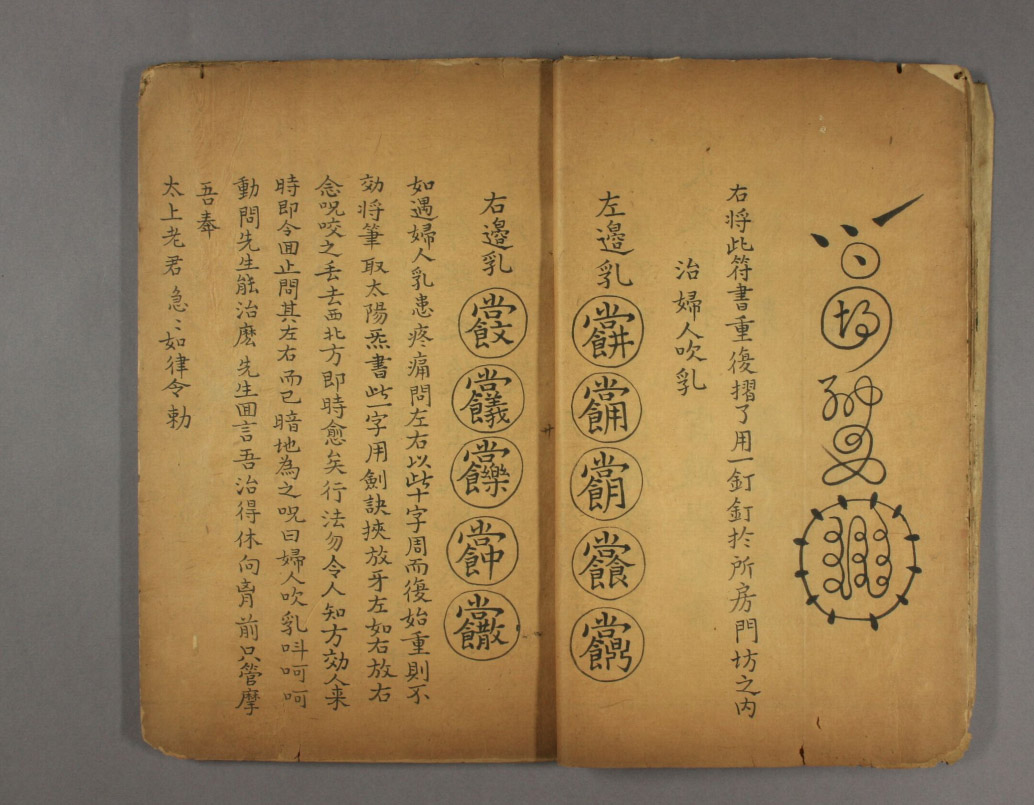 右将此符書重復摺了用一釘釘扵所房門坊之内
治婦人吹乳
左邊乳
右邊乳
如遇婦人乳患疼痛問左右以此十字周而復始重則不
効将筆取太陽炁書此一字用劍訣挾放牙左如右放右
念呪咬之丢去西北方即時愈矣行法勿令人知方効人来
時即令回止問其左右而已暗地為之呪曰婦人吹乳呌呵呵
動問先生能治麽先生回言吾治得休向胷前只管摩
吾奉
太上老君急〻如律令勅